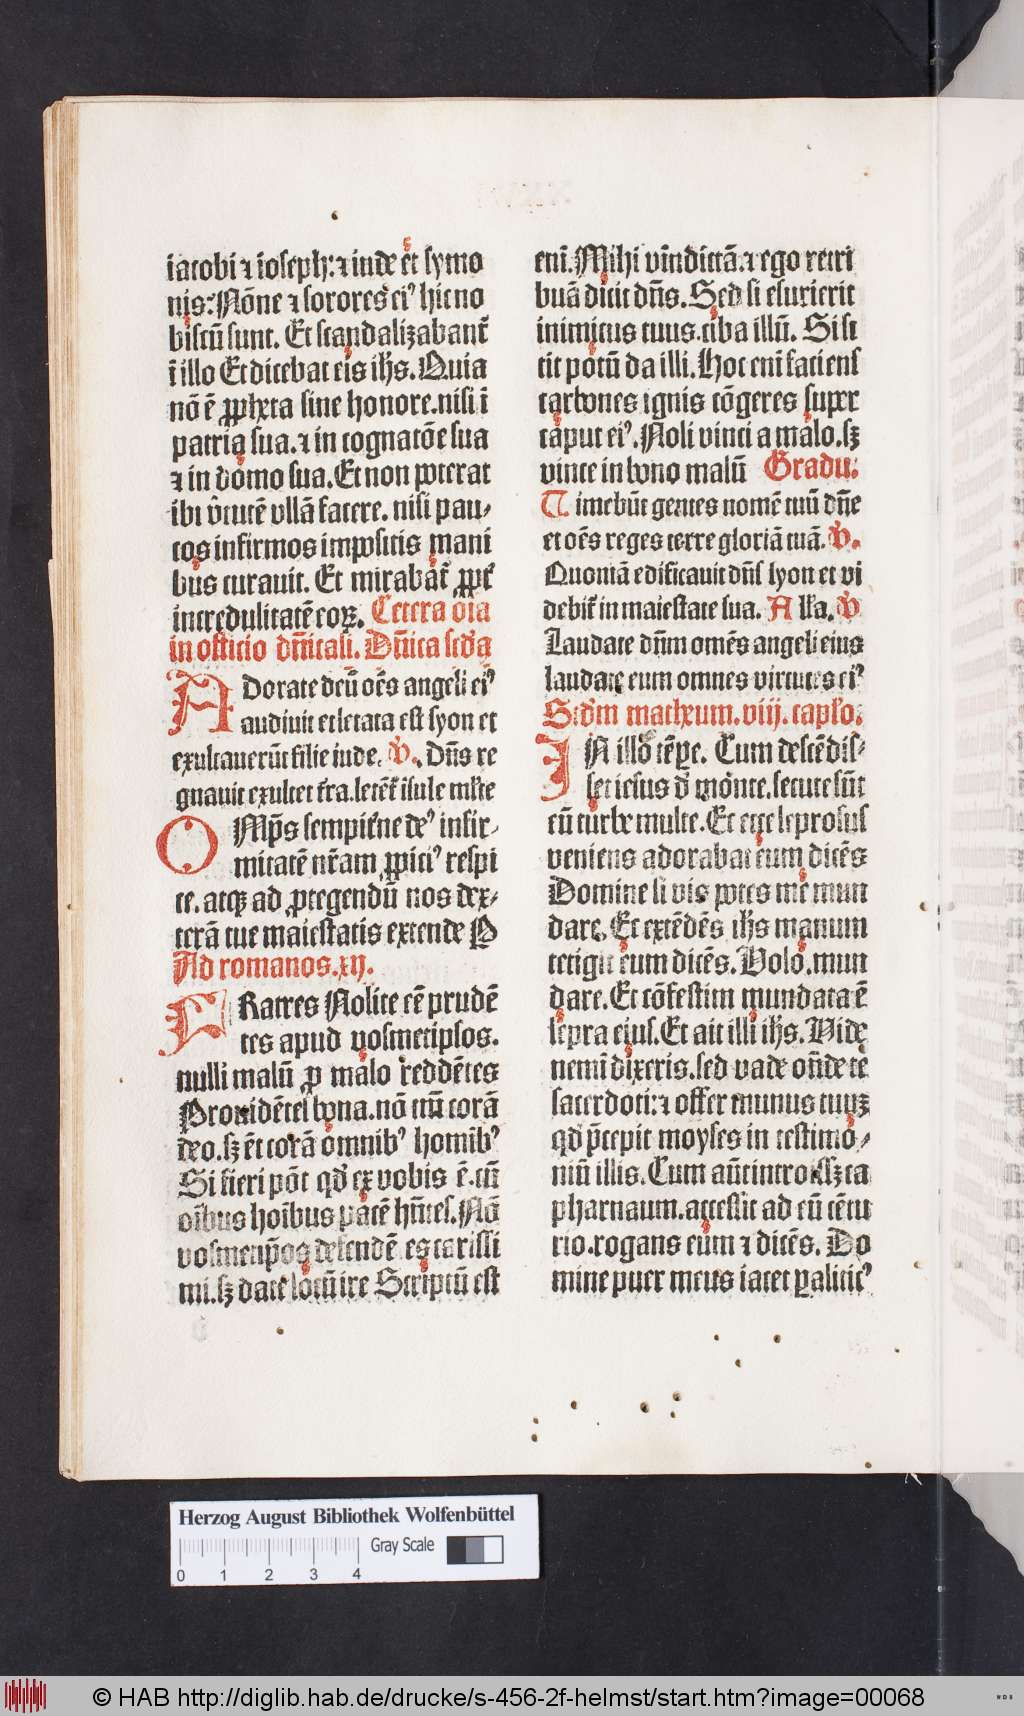 iacobi ⁊ ioseph: ⁊ inde et symo
nis: Nōne ⁊ sorores eiꝰ hic no
biscū sunt. Et scandalizabant̄
ī illo Et dicebat eis ih̄s. Quia
nō ē ꝓph̄eta sine honore. nisi ī
patria sua. ⁊ in cognatōe sua
⁊ in domo sua. Et non poterat
ibi v̄tutē vllā facere. nisi pau⸗
cos infirmos impositis mani
bus curauit. Et mirabat̄ ꝓpt̄
incredulitatē eoꝝ. Cetera oīa
in officio dn̄icali. Dn̄ica sc̄da
Adorate deū oēs angeli eiꝰ
audiuit et letata est syon et
exultauerūt filie iude. v̄. Dn̄s re
gnauit exultet t̄ra. letēt̄ īsule ml̄te
OMp̄s sempit̄ne deꝰ infir⸗
mitatē nr̄am ꝓpiciꝰ respi
te. atqꝫ ad ꝓtegendū nos dex⸗
terā tue maiestatis extende P
Ad romanos. xij.
FRatres Nolite eē prudē
tes apud vosmetipsos.
nulli malū ꝓ malo reddētes
Prouidētes bona. nō tm̄ corā
deo. sꝫ et corā omnibꝰ homībꝰ
Si fieri pōt qd̄ ex vobis ē. cū
oībus hoībus pacē hn̄tes. Nō
vosmetip̄os defendē es carissi
mi. sꝫ date locū ire Scriptū est
eni. Mihi vīndictā. ⁊ ego retri
buā dicit dn̄s. Sed si esurierit
inimicus tuus. ciba illū. Si si
tit potū da illi. Hoc enī faciens
carbones ignis cōgeres super
caput eiꝰ. Noli vinci a malo. sꝫ
vince in bono malū Gradu.
Timebūt gentes nomē tuū dn̄e
et oēs reges terre gloriā tuā. v̄.
Quoniā edificauit dn̄s syon et vi
debit̄ in maiestate sua. Alla. v̄
Laudate dn̄m omēs angeli eius
laudate eum omnes virtutes eiꝰ
Scd̄m matheum. viij. caplo.
IN illo tēpe. Cum descēdis⸗
set iesus d̄ monte. secute sūt
eū turbe multe. Et ecce leprosus
veniens adorabat eum dicēs
Domine si vis potes me mun
dare. Et extēdēs ih̄s manum
tetigit eum dicēs. Volo. mun
dare. Et cōfestim mundata ē
lepra eius. Et ait illi ih̄s. Vide
nemī dixeris. sed vade on̄de te
sacerdoti: ⁊ offer munus tuuꝫ
qd̄ p̄cepit moyses in testimo⸗
niū illis. Cum aūt introissꝫ ca
pharnaum. accessit ad eū cētu
rio. rogans eum ⁊ dicēs. Do
mine puer meus iacet ꝑaliticꝰ
Herzog August Bibliothek Wolfenbüttel
Gray Scale
0 1 2 3 4
© HAB http://diglib.hab.de/drucke/s-456-2f-helmst/start.htm?image=00068